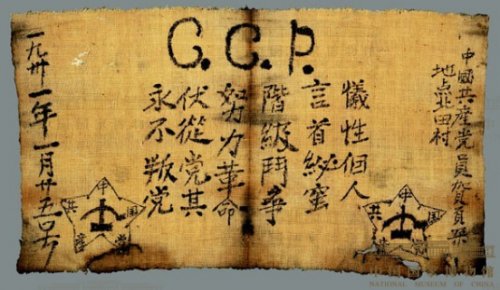 C.C.P.
中國共産党員賀頁朵
地点北田村
犧性個人
言首秘蜜
階級鬥爭
努力革命
伏從党其
永不叛党
一九卅一年一月廿五号
中
共
国
中
共
国
NATIONAL MUSEUM OF CHINA